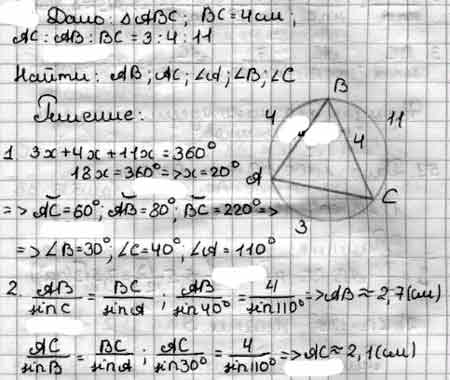 Дано: ΔABC; BC=4см;
AC:AB:BC=3:4:11
Найти: AB; AC; ∠A; ∠B; ∠C
Решение:
B
4
11
4
A
C
3
1. 3x+4x+11x=360°
18x=360°=>x=20°
=> ◡AC=60°; ◡AB=80°; ◡BC=220°=>
=> ∠B=30°; ∠C=40°; ∠A=110°
2. AB/sinC = BC/sinA ; AB/sin40° = 4/sin110° => AB≈2,7(см)
AC/sinB = BC/sinA ; AC/sin30° = 4/sin110° => AC≈2,1(см)